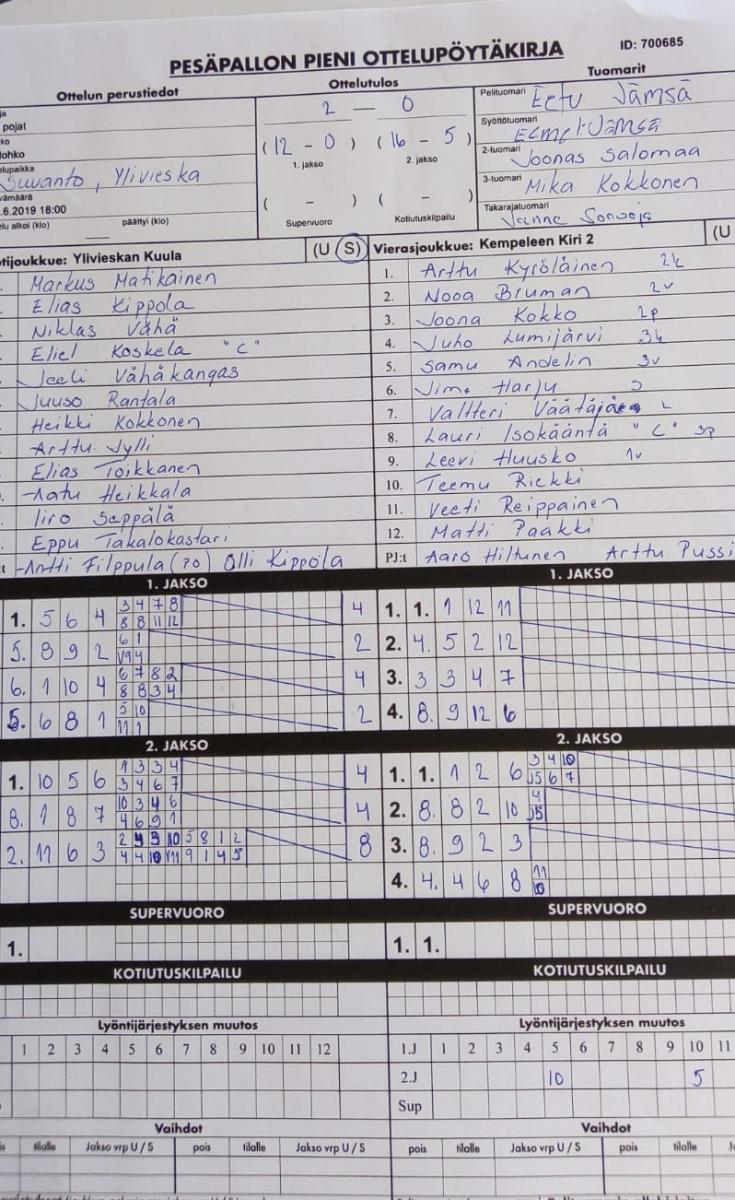 PESÄPALLON PIENI OTTELUPÖYTÄKIRJA
ID: 700685
Ottelun perustiedot
Ottelutulos
Tuomarit
pojat
lohko
Suvanto, Ylivieska
.6.2019 18:00
päättyi (klo)
2 — 0
(12 - 0) (16 - 5)
1. jakso 2. jakso
( - ) ( - )
Supervuoro Kotiutuskilpailu
Pelituomari Eetu Jämsä
Syöttötuomari Eemeli Jämsä
2-tuomari Joonas Salomaa
3-tuomari Mika Kokkonen
Takarajatuomari Janne
tijoukkue: Ylivieskan Kuula (U S)
Markus Matikainen
Elias Kippola
Niklas Vähä
Eliel Koskela "C"
Jeeli Vähäkangas
Juuso Rantala
Heikki Kokkonen
Arttu Jylli
Elias Toikkanen
Aatu Heikkala
Iiro Seppälä
Eppu Takalokastari
Antti Filppula (PO) Olli Kippola
Vierasjoukkue: Kempeleen Kiri 2 (U
1. Arttu Kyröläinen 2k
2. Nooa Bruman 2v
3. Joona Kokko 2p
4. Juho Lumijärvi 3k
5. Samu Andelin 3v
6. Jimo Harju
7. Valtteri L
8. Lauri Isokääntä "C" 3p
9. Leevi Huusko 1v
10. Teemu Riekki
11. Veeti Reippainen
12. Matti Paakki
PJ:t Aaro Hiltunen Arttu Pussi
1. JAKSO
1. 5 6 4 3 4 7 8 4
8 8 11 12
5. 8 9 2 6 1 2
6. 1 10 4 6 7 8 2 4
8 8 3 4
5. 6 8 1 5 10 2
11 1
2. JAKSO
1. 10 5 6 1 3 3 4 4
3 4 6 7
8. 1 8 7 10 3 4 6 4
4 6 9 1
2. 11 6 3 2 4 3 10 5 8 1 2 8
4 4 10 11 9 1 4 5
SUPERVUORO
1.
KOTIUTUSKILPAILU
Lyöntijärjestyksen muutos
1 2 3 4 5 6 7 8 9 10 11 12
Vaihdot
tilalle Jakso vrp U / S pois tilalle Jakso vrp U / S
1. JAKSO
1. 1. 1 12 11
2. 4. 5 2 12
3. 3 3 4 7
4. 8. 9 12 6
2. JAKSO
1. 1. 1 2 6 3 4 10
5 6 7
2. 8. 8 2 10 4
5
3. 8. 9 2 3
4. 4. 4 6 8 11
10
SUPERVUORO
1. 1.
KOTIUTUSKILPAILU
Lyöntijärjestyksen muutos
1.J 1 2 3 4 5 6 7 8 9 10 11
2.J 10 5
Sup
Vaihdot
pois tilalle Jakso vrp U / S pois tilalle